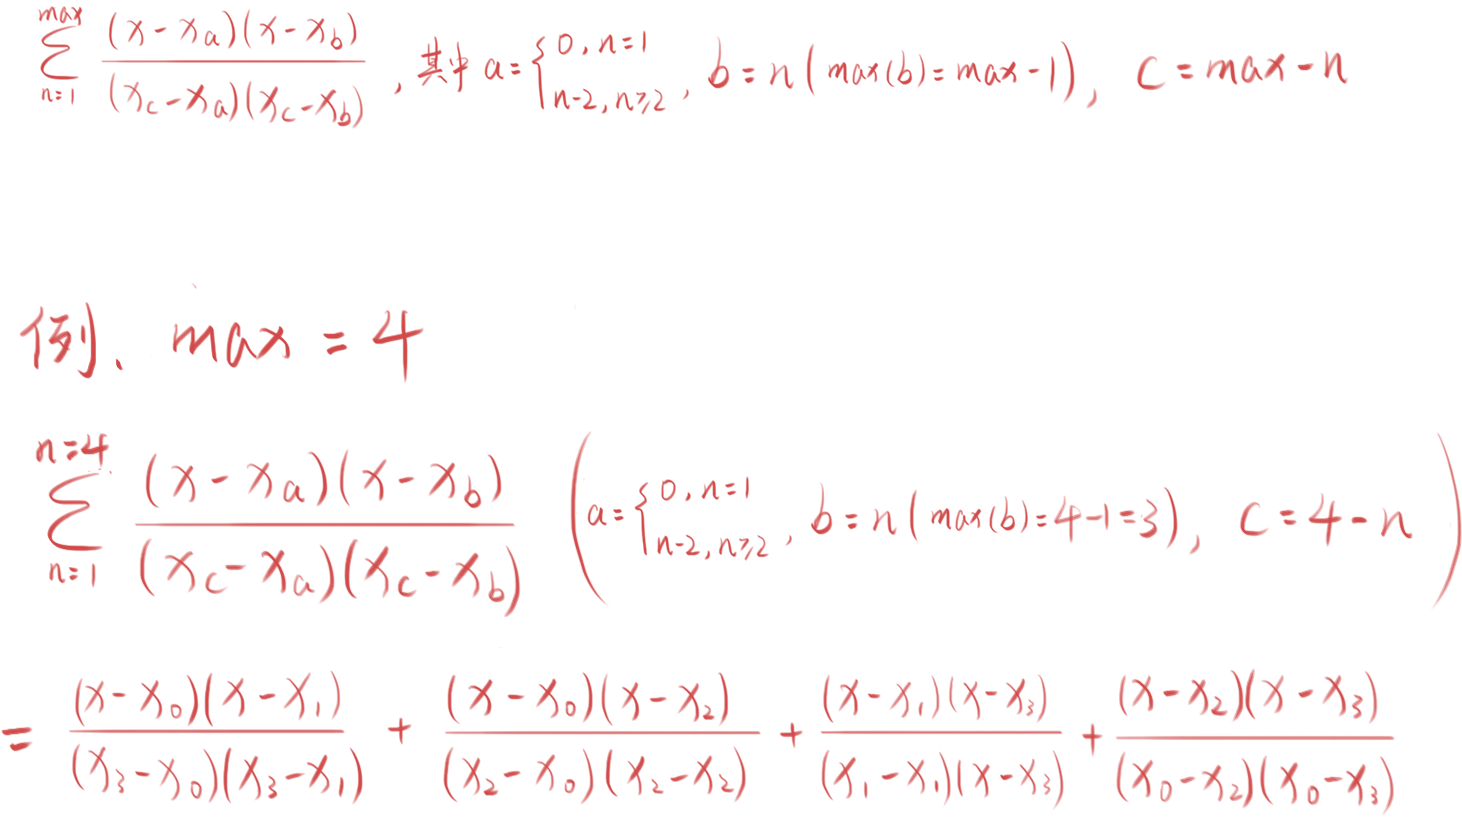 $\sum_{n=1}^{max} \frac{(x-x_a)(x-x_b)}{(x_c-x_a)(x_c-x_b)}$ , 其中 $a=\begin{cases}0, n=1\\n-2, n\geq 2\end{cases}$ , $b=n(max(b)=max-1)$, $c=max-n$
例、 max = 4
$\sum_{n=1}^{n=4} \frac{(x-x_a)(x-x_b)}{(x_c-x_a)(x_c-x_b)}$ $\left(a=\begin{cases}0, n=1\\n-2, n\geq 2\end{cases}, b=n(max(b)=4-1=3), c=4-n\right)$
$= \frac{(x-x_0)(x-x_1)}{(x_3-x_0)(x_3-x_1)} + \frac{(x-x_0)(x-x_2)}{(x_2-x_0)(x_2-x_2)} + \frac{(x-x_1)(x-x_3)}{(x_1-x_1)(x-x_3)} + \frac{(x-x_2)(x-x_3)}{(x_0-x_2)(x_0-x_3)}$